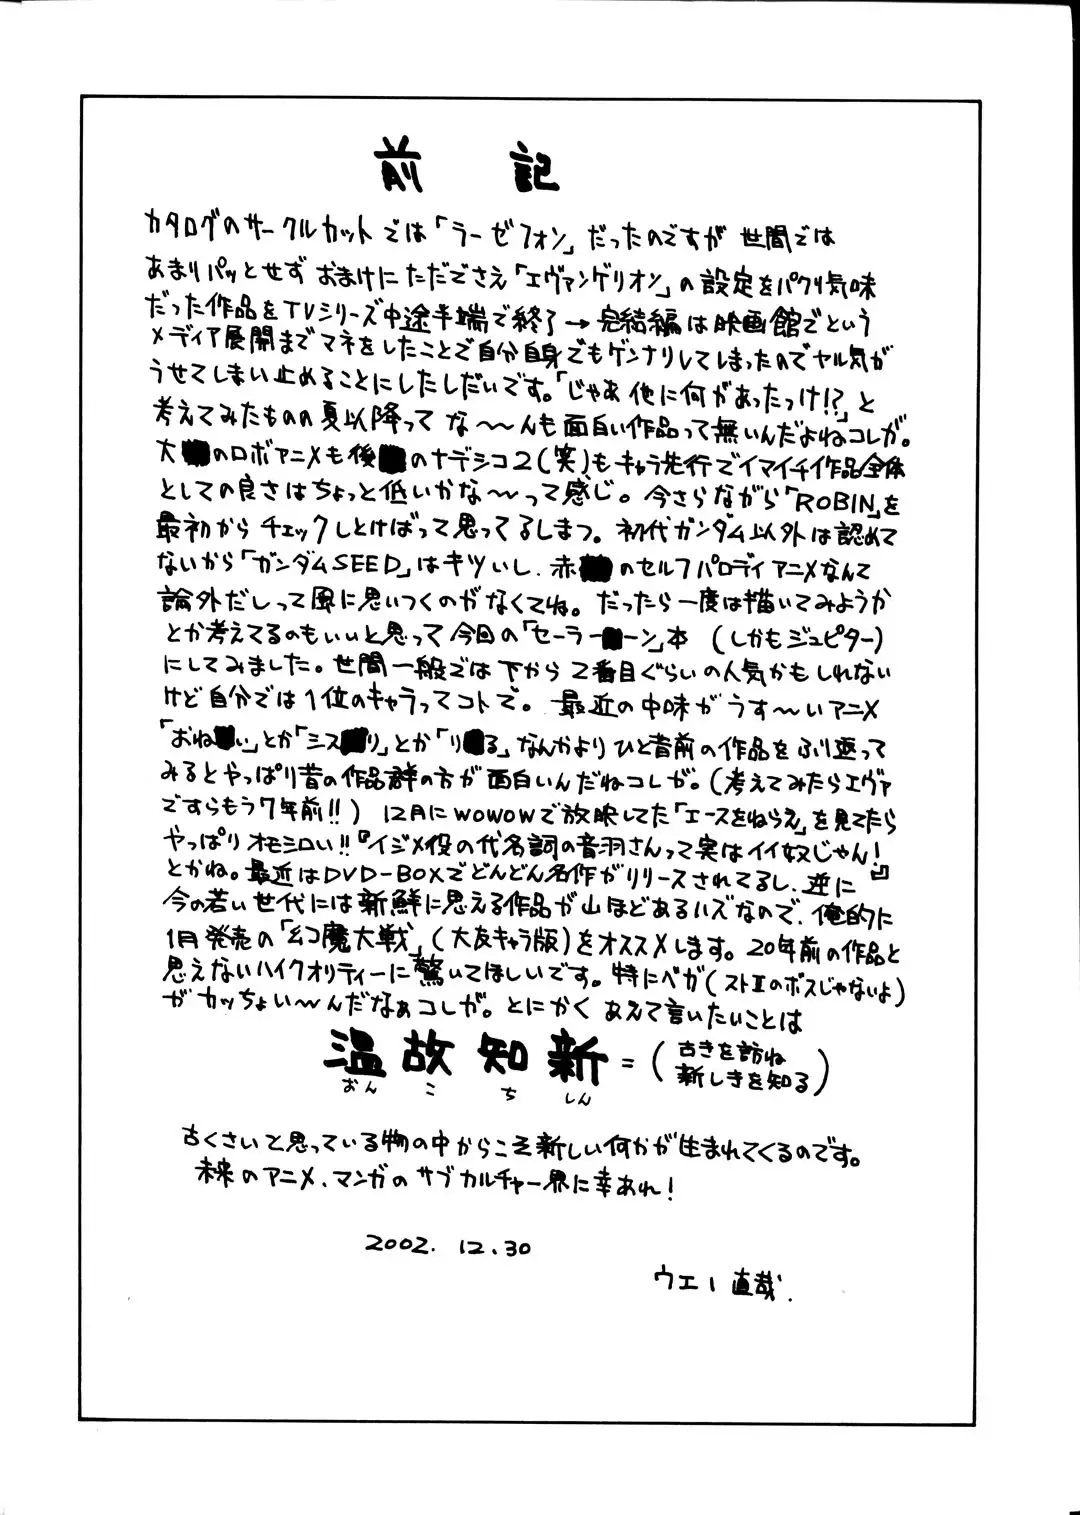 前記
カタログのサークルカットでは「ラーゼフォン」だったのですが世間では
あまりパッとせずおまけにただでさえ「エヴァンゲリオン」の設定をパクリ気味
だった作品をTVシリーズ中途半端で終了→完結編は映画館でという
メディア展開までマネをしたことで自分自身でもゲンナリしてしまったのでヤル気が
うせてしまい止めることにしたしだいです。「じゃあ他に何があったっけ!?」と
考えてみたものの夏以降ってな〜〜んも面白い作品って無いんだよねコレが。
大のロボアニメも後のナデシコ2(笑)もキャラ先行でイマイチ作品全体
としての良さはちょっと低いかな〜〜って感じ。今さらながら「ROBIN」を
最初からチェックしとけばって思ってるしまつ。初代ガンダム以外は認めて
ないから「ガンダムSEED」はキツいし、赤のセルフパロディアニメなんて
論外だしって風に思いつくのがなくてね。だったら一度は描いてみようか
とか考えてるのもいいと思って今回の「セーラーーン」本(しかもジュピター)
にしてみました。世間一般では下から2番目ぐらいの人気かもしれない
けど自分では1位のキャラってコトで。最近の中味がうす〜いアニメ
「おねい」とか「シスリ」とか「りる」なんかよりひと昔前の作品をふり返って
みるとやっぱり昔の作品群の方が面白いんだねコレが。(考えてみたらエヴァ
ですらもう7年前!!)12月にWOWOWで放映してた「エースをねらえ」を見てたら
やっぱりオモシロい!!『イジメ役の代名詞の音羽さんって実はイイ奴じゃん!』
とかね。最近はDVD-BOXでどんどん名作がリリースされてるし、逆に
今の若い世代には新鮮に思える作品が山ほどあるハズなので、俺的に
1月発売の「幻魔大戦」(大友キャラ版)をオススメします。20年前の作品と
思えないハイクオリティーに驚いてほしいです。特にベガ(ストⅡのボスじゃないよ)
がカッちょい〜〜んだなぁコレが。とにかくあえて言いたいことは
温故知新=(古きを訪ね
新しきを知る)
おんこちしん
古くさいと思っている物の中からこそ新しい何かが生まれてくるのです。
未来のアニメ、マンガのサブカルチャー界に幸あれ!
2002.12.30
ウエー直哉.